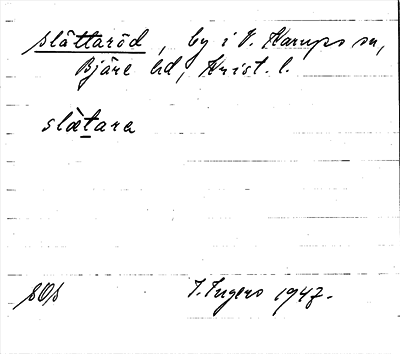 slättaröd, by i V. Karups sn,
Bjäre hd, Krist. l.
slætara
SOs
I. Ingers 1947.